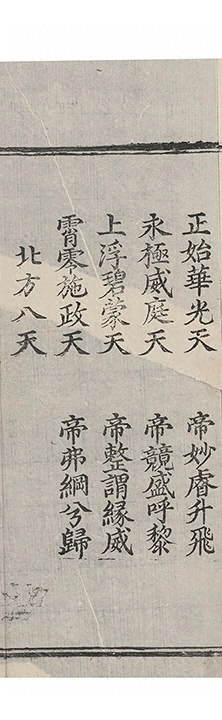 正始華光天　帝妙睿升飛
永極威庭天　帝競盛呼黎
上浮碧蒙天　帝整謂緣威
霄零施政天　帝弗綱兮歸
北方八天